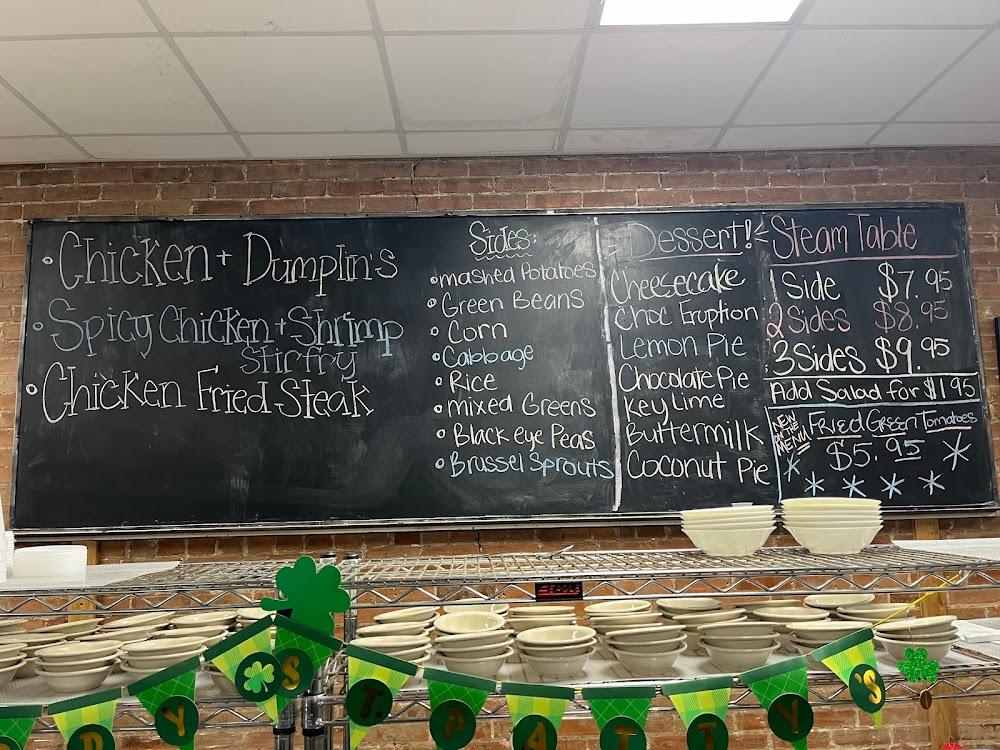 Chicken + Dumplin's
Spicy Chicken + Shrimp
Stirfry
Chicken Fried Steak
Sides:
mashed Potatoes
Green Beans
Corn
Cabbage
Rice
mixed Greens
Black eye Peas
Brussel Sprouts
Dessert!
Cheesecake
Choc Eruption
Lemon Pie
Chocolate Pie
Key Lime
Buttermilk
Coconut Pie
Steam Table
1 Side $7.95
2 Sides $8.95
3 Sides $9.95
Add Salad for $1.95
NEW
ON THE
MENU
Fried Green Tomatoes
$5.95
DY'S ST. PATTY'S